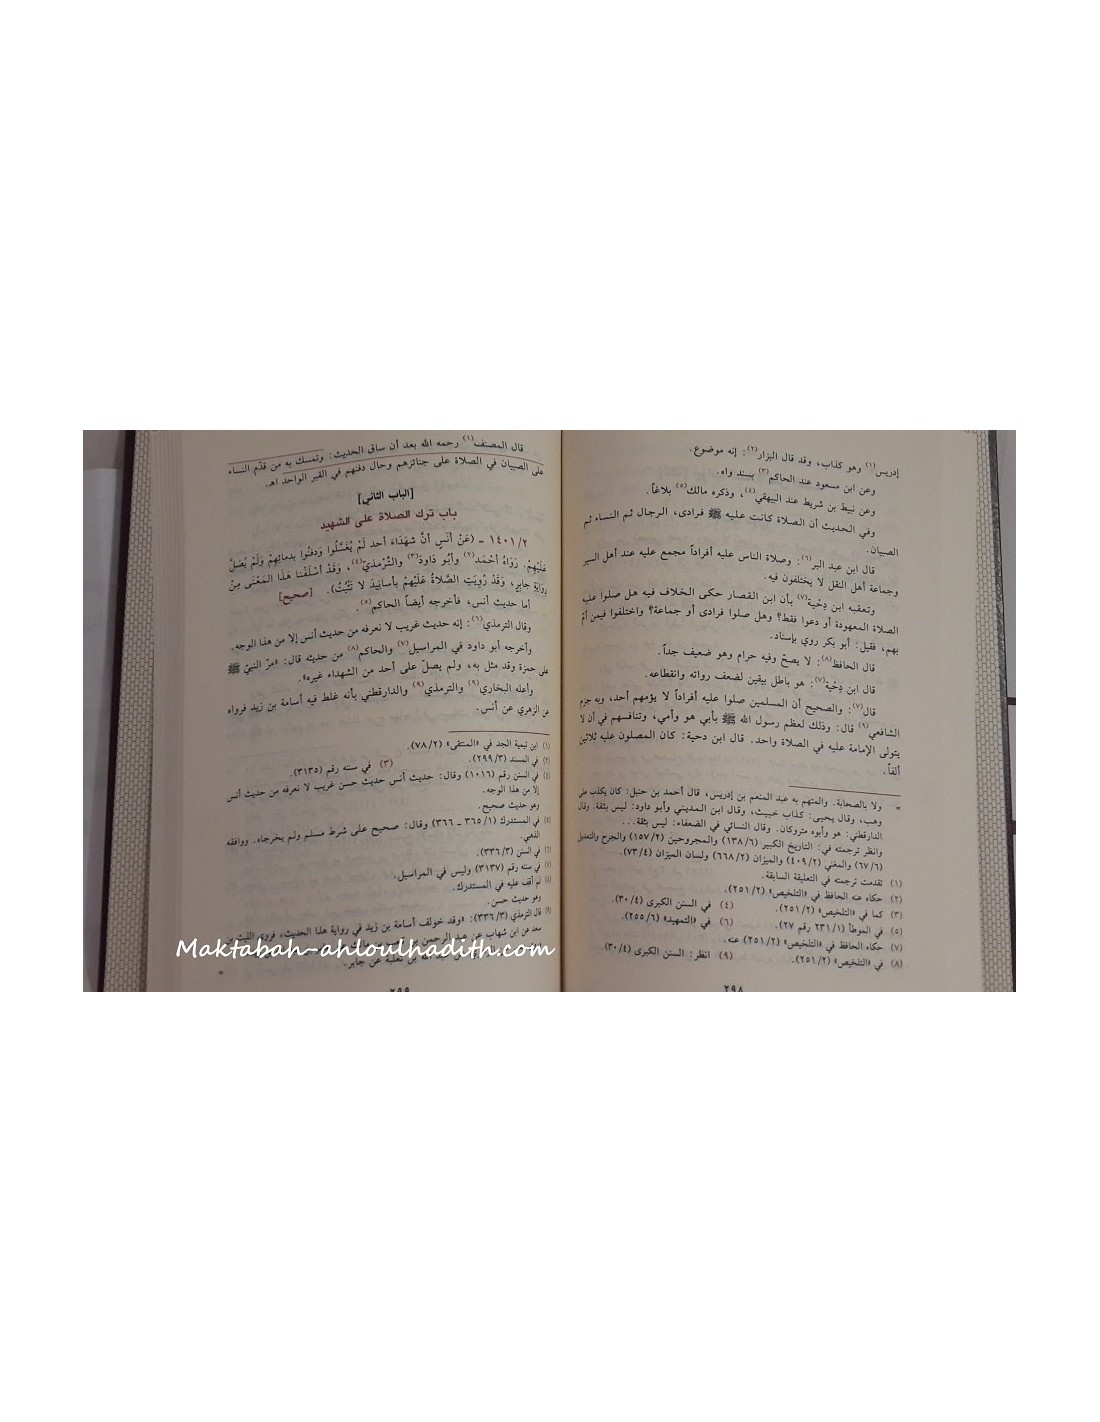 إدريس(١) وهو كذاب، وقد قال البزار(٢): إنه موضوع.
وعن ابن مسعود عند الحاكم(٣) بسند واه.
وعن نبيط بن شريط عند البيهقي(٤)، وذكره مالك(٥) بلاغاً.
وفي الحديث أن الصلاة كانت عليه ﷺ فرادى، الرجال ثم النساء ثم
الصبيان.
قال ابن عبد البر(٦): وصلاة الناس عليه أفراداً مجمع عليه عند أهل السير
وجماعة أهل النقل لا يختلفون فيه.
وتعقبه ابن دِحْية(٧) بأن ابن القصار حكى الخلاف فيه هل صلوا عليه
الصلاة المعهودة أو دعوا فقط؟ وهل صلوا فرادى أو جماعة؟ واختلفوا فيمن أمّ
بهم، فقيل: أبو بكر روي بإسناد.
قال الحافظ(٨): لا يصحّ وفيه حرام وهو ضعيف جداً.
قال ابن دِحْية(٧): هو باطل بيقين لضعف رواته وانقطاعه.
قال(٧): والصحيح أن المسلمين صلوا عليه أفراداً لا يؤمهم أحد، وبه جزم
الشافعي(٩) قال: وذلك لعظم رسول الله ﷺ بأبي هو وأمي، وتنافسهم في أن لا
يتولى الإمامة عليه في الصلاة واحد. قال ابن دحية: كان المصلون عليه ثلاثين
ألفاً.
= ولا بالصحابة. والمتهم به عبد المنعم بن إدريس، قال أحمد بن حنبل: كان يكذب على
وهب، وقال يحيى: كذاب خبيث، وقال ابن المديني وأبو داود: ليس بثقة. وقال
الدارقطني: هو وأبوه متروكان. وقال النسائي في الضعفاء: ليس بثقة...
وانظر ترجمته في: التاريخ الكبير (٦/١٣٨) والمجروحين (٢/١٥٧) والجرح والتعديل
(٦/٦٧) والمغني (٢/٤٠٩) والميزان (٢/٦٦٨) ولسان الميزان (٤/٧٣).
(١) تقدمت ترجمته في التعليقة السابقة.
(٢) حكاه عنه الحافظ في «التلخيص» (٢/٢٥١).
(٣) كما في «التلخيص» (٢/٢٥١). (٤) في السنن الكبرى (٤/٣٠).
(٥) في الموطأ (١/٢٣١ رقم ٢٧). (٦) في «التمهيد» (٦/٢٥٥).
(٧) حكاه الحافظ في «التلخيص» (٢/٢٥١) عنه.
(٨) في «التلخيص» (٢/٢٥١). (٩) انظر: السنن الكبرى (٤/٣٠).
٢٩٨
قال المصنف(١) رحمه الله بعد أن ساق الحديث: وتمسك به من قدّم النساء
على الصبيان في الصلاة على جنائزهم وحال دفنهم في القبر الواحد اهـ.
[الباب الثاني]
باب ترك الصلاة على الشهيد
١٤٠١/٢ ـ (عَنْ أَنَسٍ أنَّ شُهَدَاءَ أحد لَمْ يُغَسَّلُوا وَدفنُوا بدمائِهِمْ وَلَمْ يُصَلَّ
عَلَيْهِمْ. رَوَاهُ أَحْمَد(٢) وأبُو دَاودَ(٣) والتِّرْمذيّ(٤)، وَقَدْ أسْلَفْنا هَذَا المَعْنَى مِنْ
رِوَايَةِ جابِرٍ، وَقَدْ رُوِيَتِ الصَّلاةُ عَلَيْهِمْ بأسانِيدَ لا تَثْبُتُ). [صحيح]
أما حديث أنس، فأخرجه أيضاً الحاكم(٥).
وقال الترمذي(٦): إنه حديث غريب لا نعرفه من حديث أنس إلا من هذا الوجه.
وأخرجه أبو داود في المراسيل(٧) والحاكم(٨) من حديثه قال: «مرّ النبيّ ﷺ
على حمزة وقد مثل به، ولم يصلّ على أحد من الشهداء غيره».
وأعله البخاري(٩) والترمذي(٩) والدارقطني بأنه غلط فيه أسامة بن زيد فرواه
عن الزهري عن أنس.
(١) ابن تيمية الجد في «المنتقى» (٢/٧٨).
(٢) في المسند (٣/٢٩٩). (٣) في سننه رقم (٣١٣٥).
(٤) في السنن رقم (١٠١٦) وقال: حديث أنس حديث حسن غريب لا نعرفه من حديث أنس
إلا من هذا الوجه.
وهو حديث صحيح.
(٥) في المستدرك (١/٣٦٥ ـ ٣٦٦) وقال: صحيح على شرط مسلم ولم يخرجاه. ووافقه
الذهبي.
(٦) في السنن (٣/٣٣٦).
(٧) في سننه رقم (٣١٣٧) وليس في المراسيل.
(٨) لم أقف عليه في المستدرك.
وهو حديث حسن.
(٩) قال الترمذي (٣/٣٣٦): «وقد خولف أسامة بن زيد في رواية هذا الحديث، فروى الليث بن
سعد عن ابن شهاب عن عبد الرحمن بن
الله بن ثعلبة عن جابر. =
Maktabah-ahloulhadith.com
٢٩٩